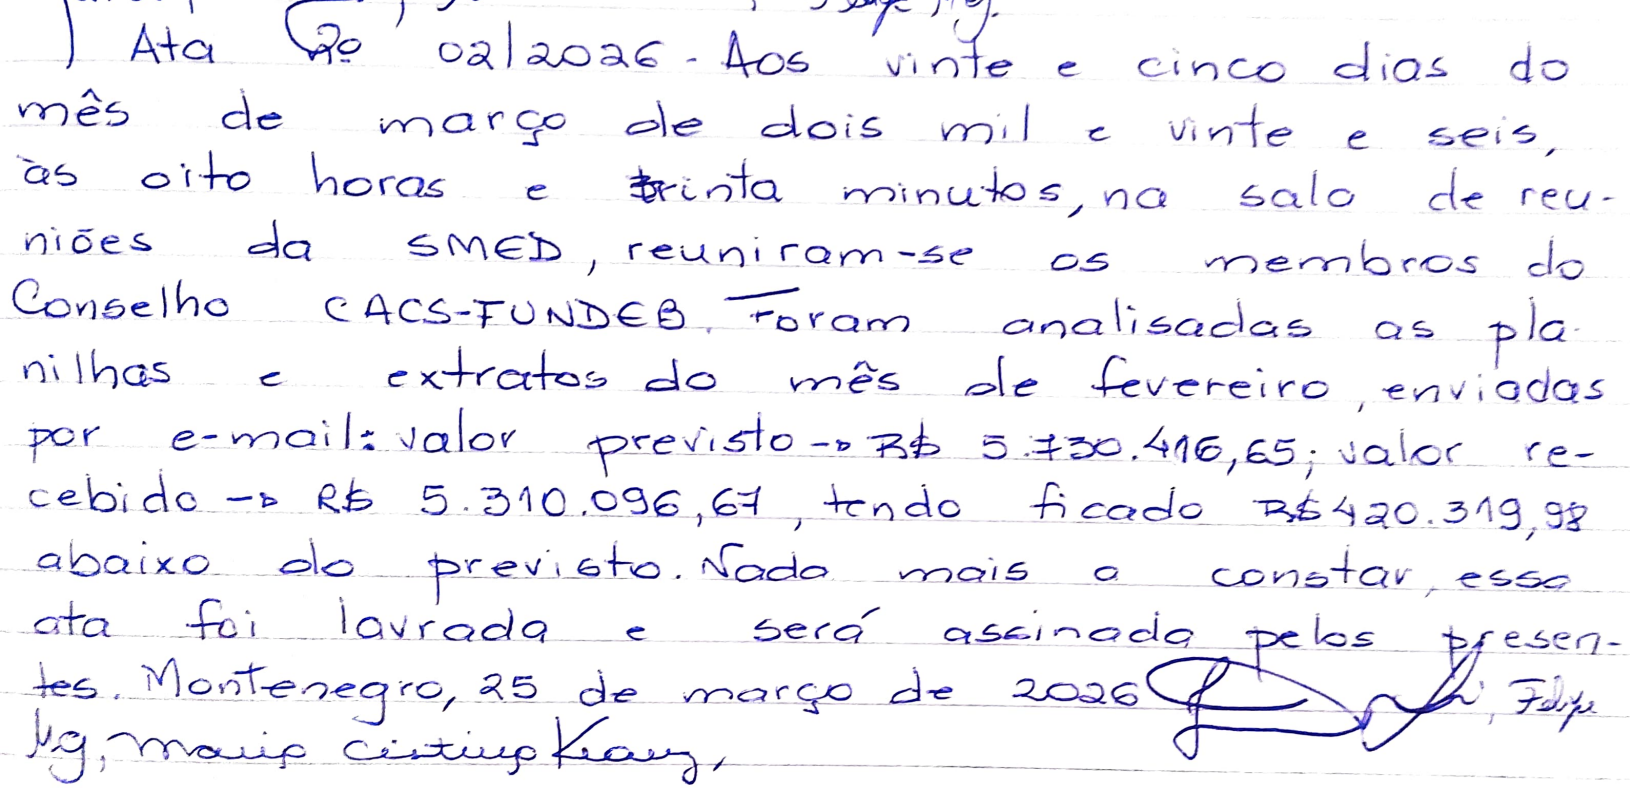 Ata nº 02/2026 - Aos vinte e cinco dias do
mês de março de dois mil e vinte e seis,
às oito horas e trinta minutos, na sala de reu-
niões da SMED, reuniram-se os membros do
Conselho CACS-FUNDEB. Foram analisadas as pla-
nilhas e extratos do mês de fevereiro, enviadas
por e-mail: valor previsto → R$ 5.730.416,65; valor re-
cebido → R$ 5.310.096,67, tendo ficado R$ 420.319,98
abaixo do previsto. Nada mais a constar, essa
ata foi lavrada e será assinada pelos presen-
tes. Montenegro, 25 de março de 2026 , Felipe